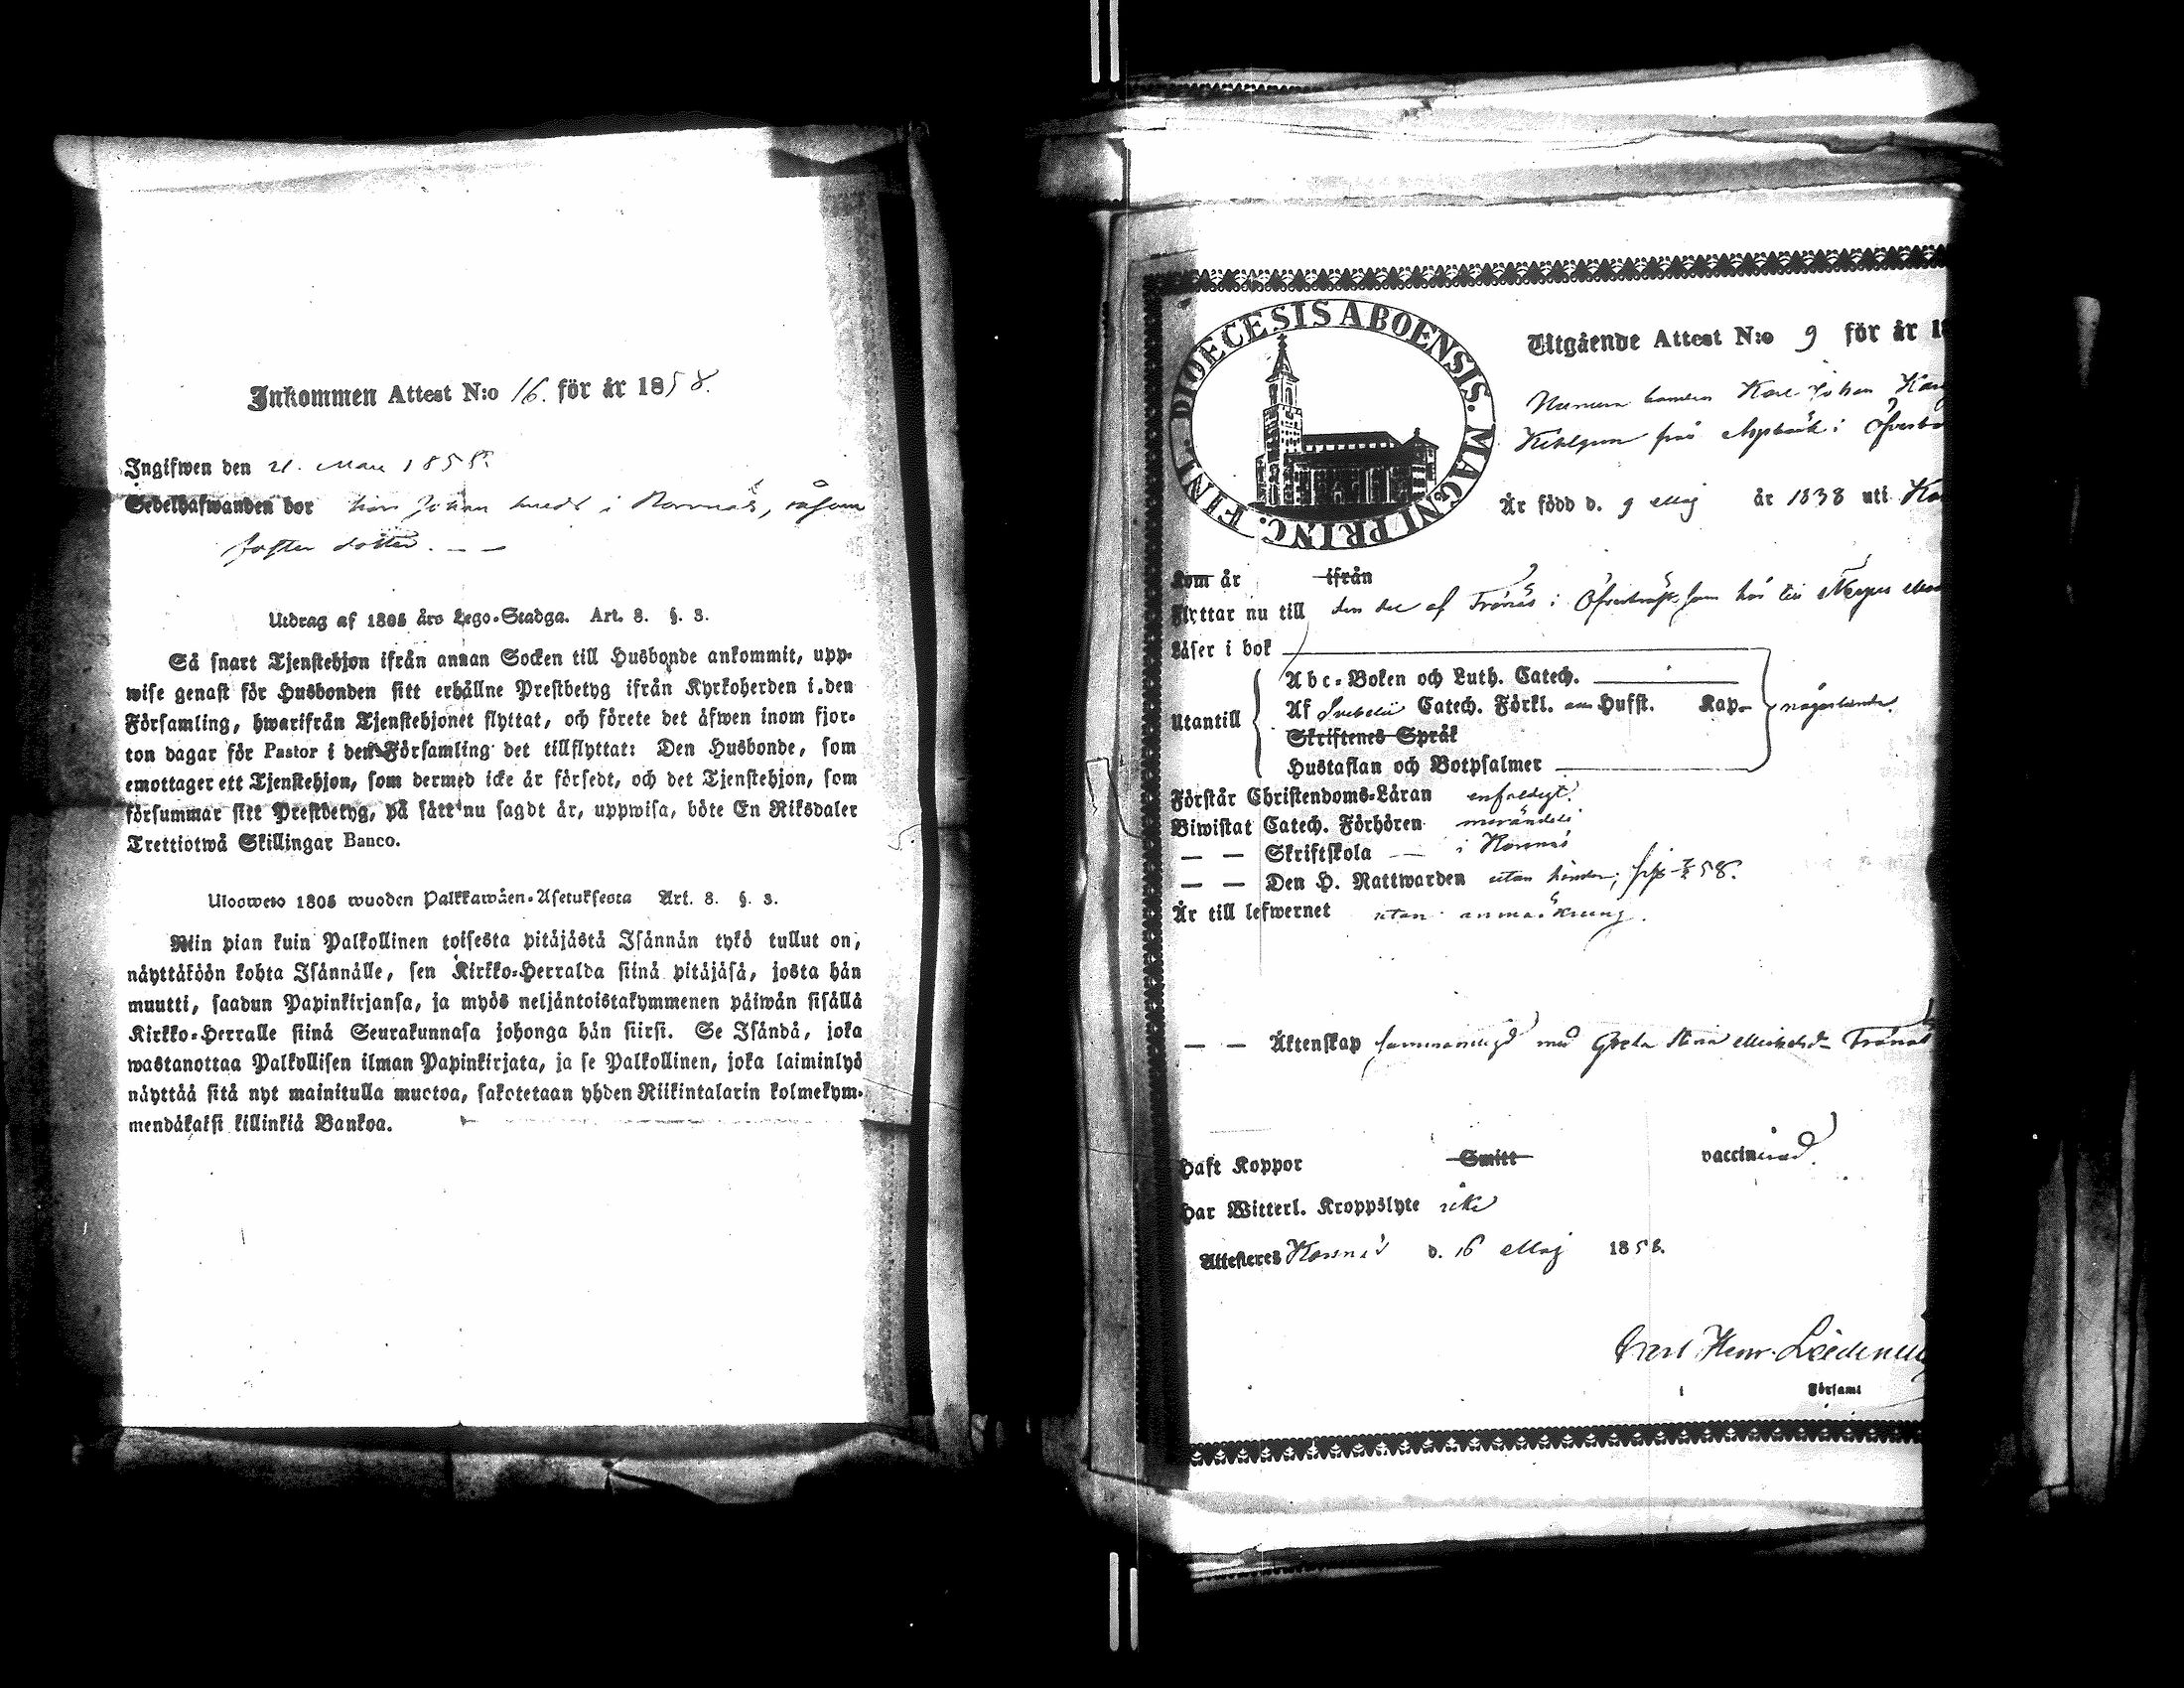 Inkommen Attest N:o 16. för år 1858.
Ingifwen den 21. 1858.
Sedelhafwanden bor hos Johan i såsom
foster dotter. — —
Utdrag af 1805 års Lego-Stadga. Art. 8. §. 3.
Så snart Tjenstehjon ifrån annan Socken till Husbonde ankommit, upp-
wise genast för Husbonden sitt erhållne Prestbetyg ifrån Kyrkoherden i den
Församling, hwarifrån Tjenstehjonet flyttat, och förete det åfwen inom fjor-
ton dagar för Pastor i den Församling det tillflyttat: Den Husbonde, som
emottager ett Tjenstehjon, som dermed icke är försedt, och det Tjenstehjon, som
försummar sitt Prestbetyg, på sätt nu sagdt är, uppwisa, böte En Riksdaler
Trettiotwå Skillingar Banco.
Uloswets 1805 wuoden Palkkawäen-Asetuksesta Art. 8. §. 3.
Niin pian kuin Palkollinen toisesta pitäjästä Isännän tykö tullut on,
näyttäköön kohta Isännälle, sen Kirkko-Herralda siinä pitäjäsä, josta hän
muutti, saadun Papinkirjansa, ja myös neljäntoistakymmenen päiwän sisällä
Kirkko-Herralle siinä Seurakunnasa johonga hän siirsi. Se Isändä, joka
wastanottaa Palkollisen ilman Papinkirjata, ja se Palkollinen, joka laiminlyö
näyttää sitä nyt mainitulla muotoa, sakotetaan yhden Riikintalarin kolmekym-
mendäkaksi killinkiä Bankoa.
DIOECESIS ABOENSIS. MAGNI PRINC. FINL.
Utgående Attest N:o 9 för år 18
Karl Johan
från i
Är född d. 9 Maj år 1838 uti
Kom år ifrån
Flyttar nu till den del af Tränäs i som hör till
Läser i bok
Utantill
Abc-Boken och Luth. Catech.
Af Svebelii Catech. Förkl. Hufst. Kap.
någorlunda.
Skriftenes Språk
Hustaflan och Botpsalmer
Förstår Christendoms-Läran enfaldigt.
Biwistat Catech. Förhören merändels
— — Skriftskola — i Korsnäs
— — Den H. Nattwarden utan hinder, 58.
Är till lefwernet utan anmärkning.
— — Äktenskap med Greta Tränäs
Haft Koppor Smitt vaccinerad.
Har Witterl. Kroppslyte icke
Attesteres Korsnäs d. 16 Maj 1858.
Carl Henr.
i Församl